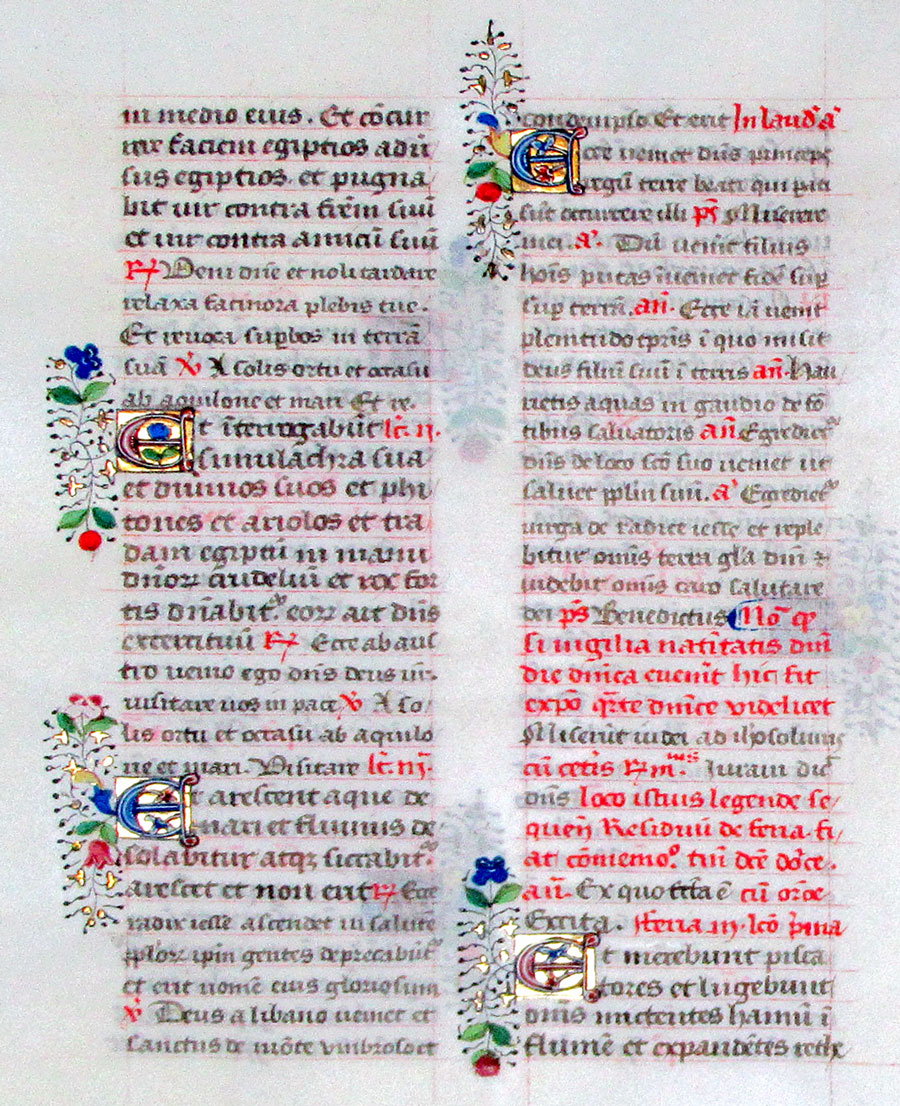 in medio eius. Et cōcur
rere faciem egiptios adū
sus egiptios. et pugna
bit uir contra frēm suū
et uir contra amicū suū
R Veni dn̄e et noli tardare
relaxa facinora plebis tue.
Et reuoca supsos in terrā
suā V A solis ortu et occasu
ab aquilone et mari Et re.
Et īterrogabūt lc̄. ii.
simulachra sua
et diuinos suos et phi
tones et ariolos et tra
dam egiptū in manu
dn̄orꝝ crudeliū et rex for
tis dn̄abit᷑ eorꝝ ait dn̄s
exercituū R Ecce ab aus
tro uenio ego dn̄s deus ur̄.
uisitare uos in pace V A so
lis ortu et occasu ab aquilo
ne et mari. Visitare lc̄. iii.
Et arescent aque de
mari et fluuius de
solabitur atqꝫ siccabit᷑
arescet et non erit R Ecce
radix iesse ascendet in salutē
pplorꝝ ip̄m gentes deprecabūt᷑
et erit nomē eius gloriosum
V Deus a libano ueniet et
sanctus de mōte umbroso et
condempso Et erit In laud' a'
Ecce ueniet dn̄s princeps
regū terre beati qui pati
sūt occurrere illi ps̄ Miserere
mei. a'. Dū uenerit filius
hoīs putas īueniet fidē sup
sup terrā. an̄. Ecce iā uenit
plenitudo tp̄ris ī quo misit
deus filiū suū ī terris an̄. Hau
rietis aquas in gaudio de fō
tibus saluatoris an̄ Egrediet᷑
dn̄s de loco sc̄o suo ueniet ut
saluet pplm suū. a' Egrediet᷑
uirga de radice iesse et reple
bitur omnis terra gl̄a dn̄i ⁊
uidebit omnis caro salutare
dei ps̄ Benedictus Nō q
si uigilia natiuitatis dn̄i
die dn̄ica euenīt hic fit
expō q̄rte dn̄ice videlicet
Miserūt iudei ad ih̓osolimis
cū ceteis R m̄ius. Iuraui dic̄
dn̄s loco istius legende se
quen̄ Residuū de feria. fi
at cōmemo°. tm̄ dce do'ce.
an̄. Ex quo fc̄ta ē cū orōe
Excita. Feria iii. lc̄o p̄ma
Et merebunt pisca
tores et lugebunt
om̄s mictentes hamū ī
flumē et expandētes rethe